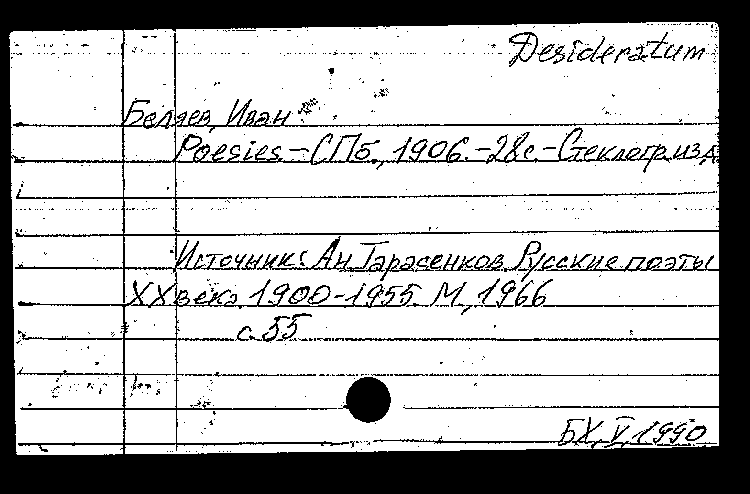 Desideratum
Беляев, Иван
Poesies.-СПб., 1906.-28с.-Стеклогр.изд
Источник: Ан.Тарасенков. Русские поэты
XX века. 1900-1955. М., 1966
с.55
БХ, V, 1990